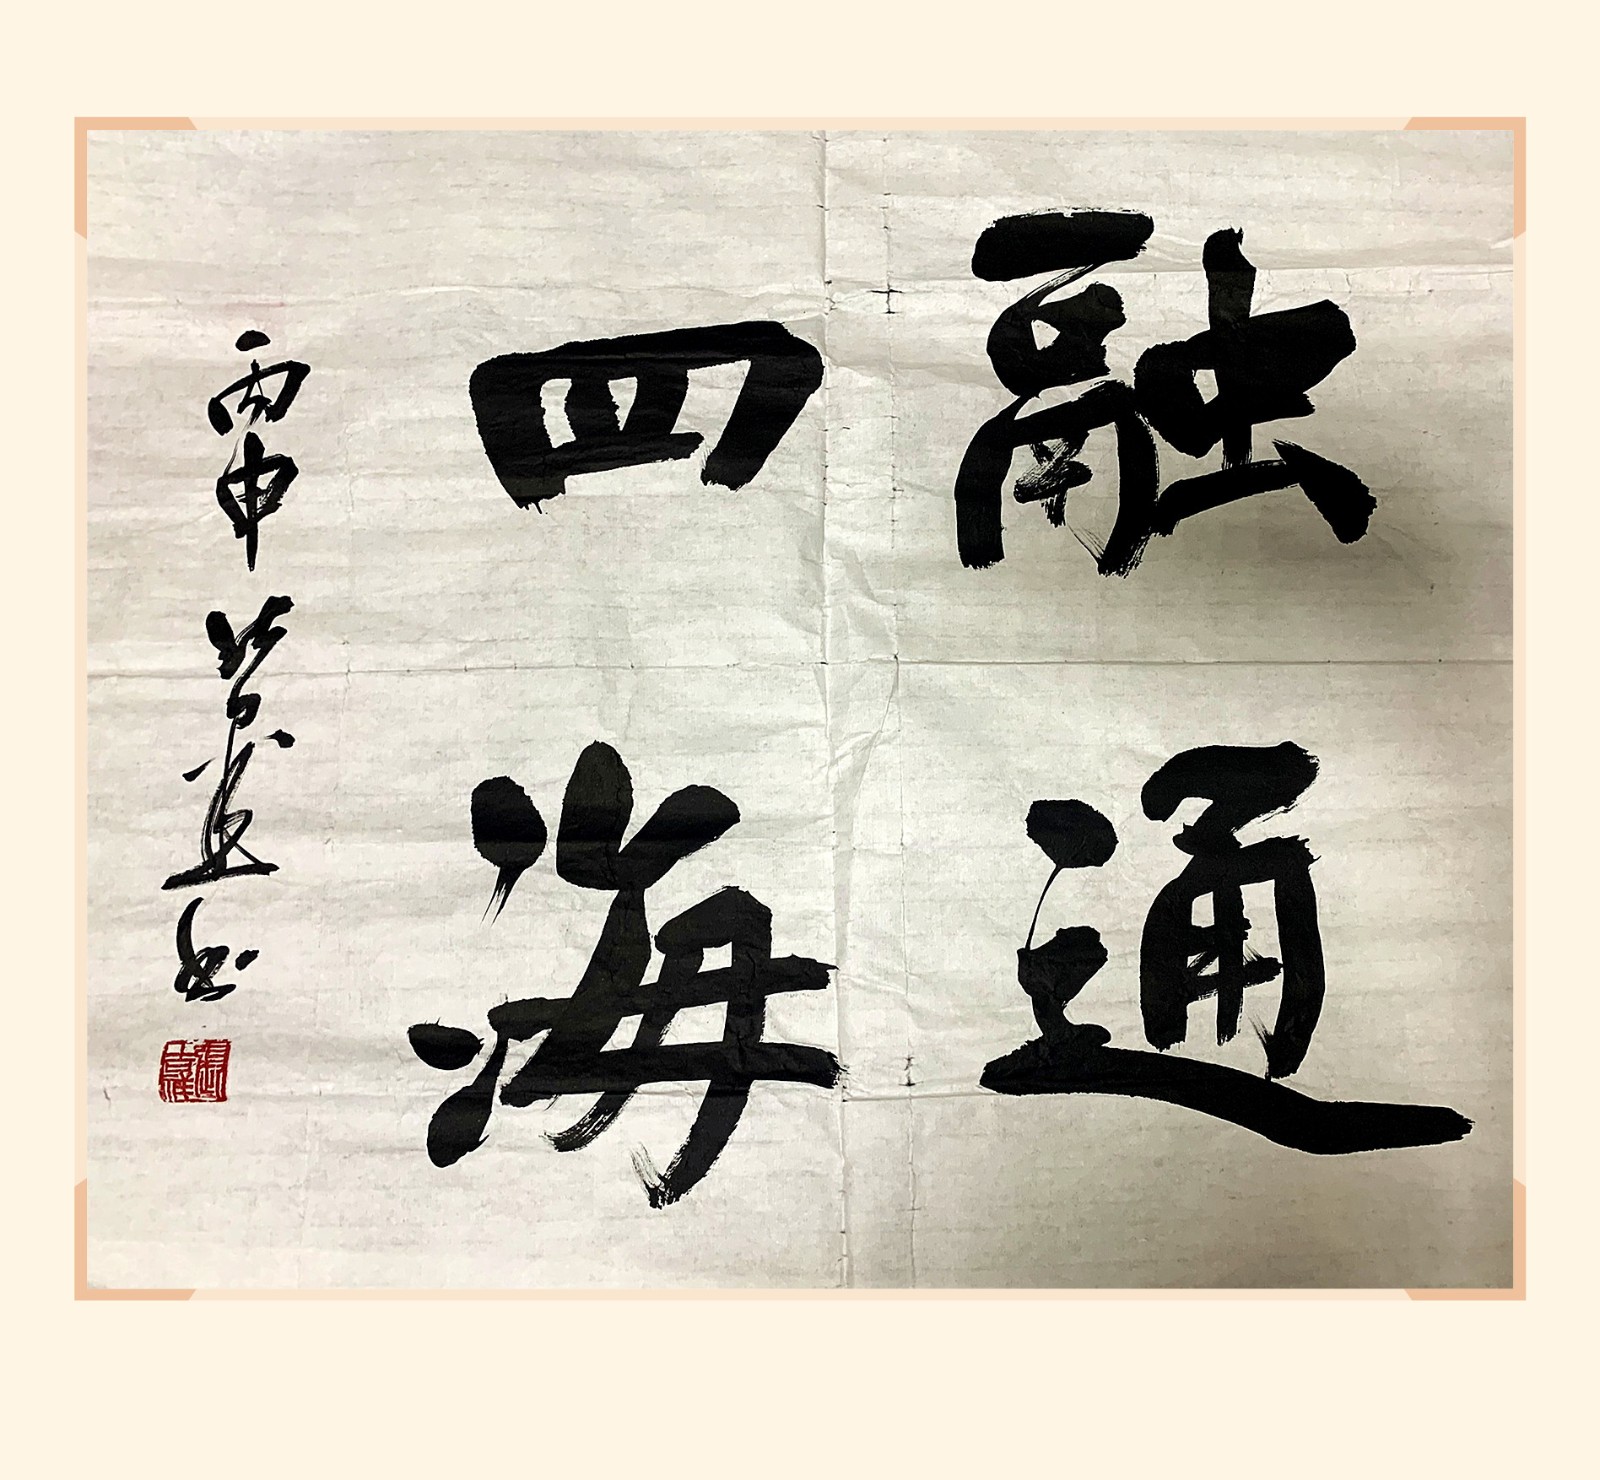 融通
四海
丙申
书